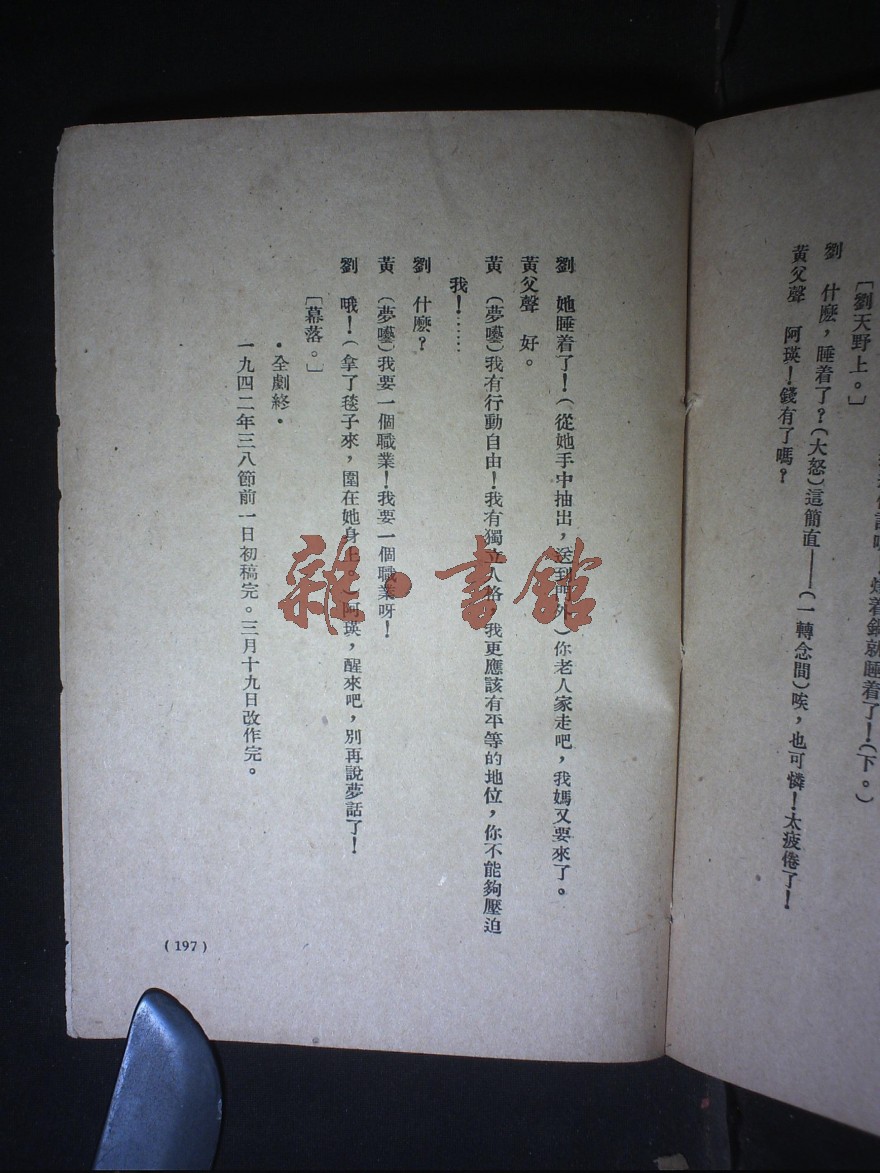 着鍋就睡着了!(下。)
[劉天野上。]
劉 什麽,睡着了?(大怒)這簡直——(一轉念間)唉,也可憐!太疲倦了!
黃父聲 阿瑛!錢有了嗎?
劉 她睡着了!(從她手中抽出,送到門外)你老人家走吧,我媽又要來了。
黃父聲 好。
黃 (夢囈)我有行動自由!我有獨立人格,我更應該有平等的地位,你不能夠壓迫
我!……
劉 什麽?
黃 (夢囈)我要一個職業!我要一個職業呀!
劉 哦!(拿了毯子來,圍在她身上。)阿瑛,醒來吧,別再說夢話了!
[幕落。]
·全劇終·
一九四二年三八節前一日初稿完。三月十九日改作完。
(197)
雜·書館